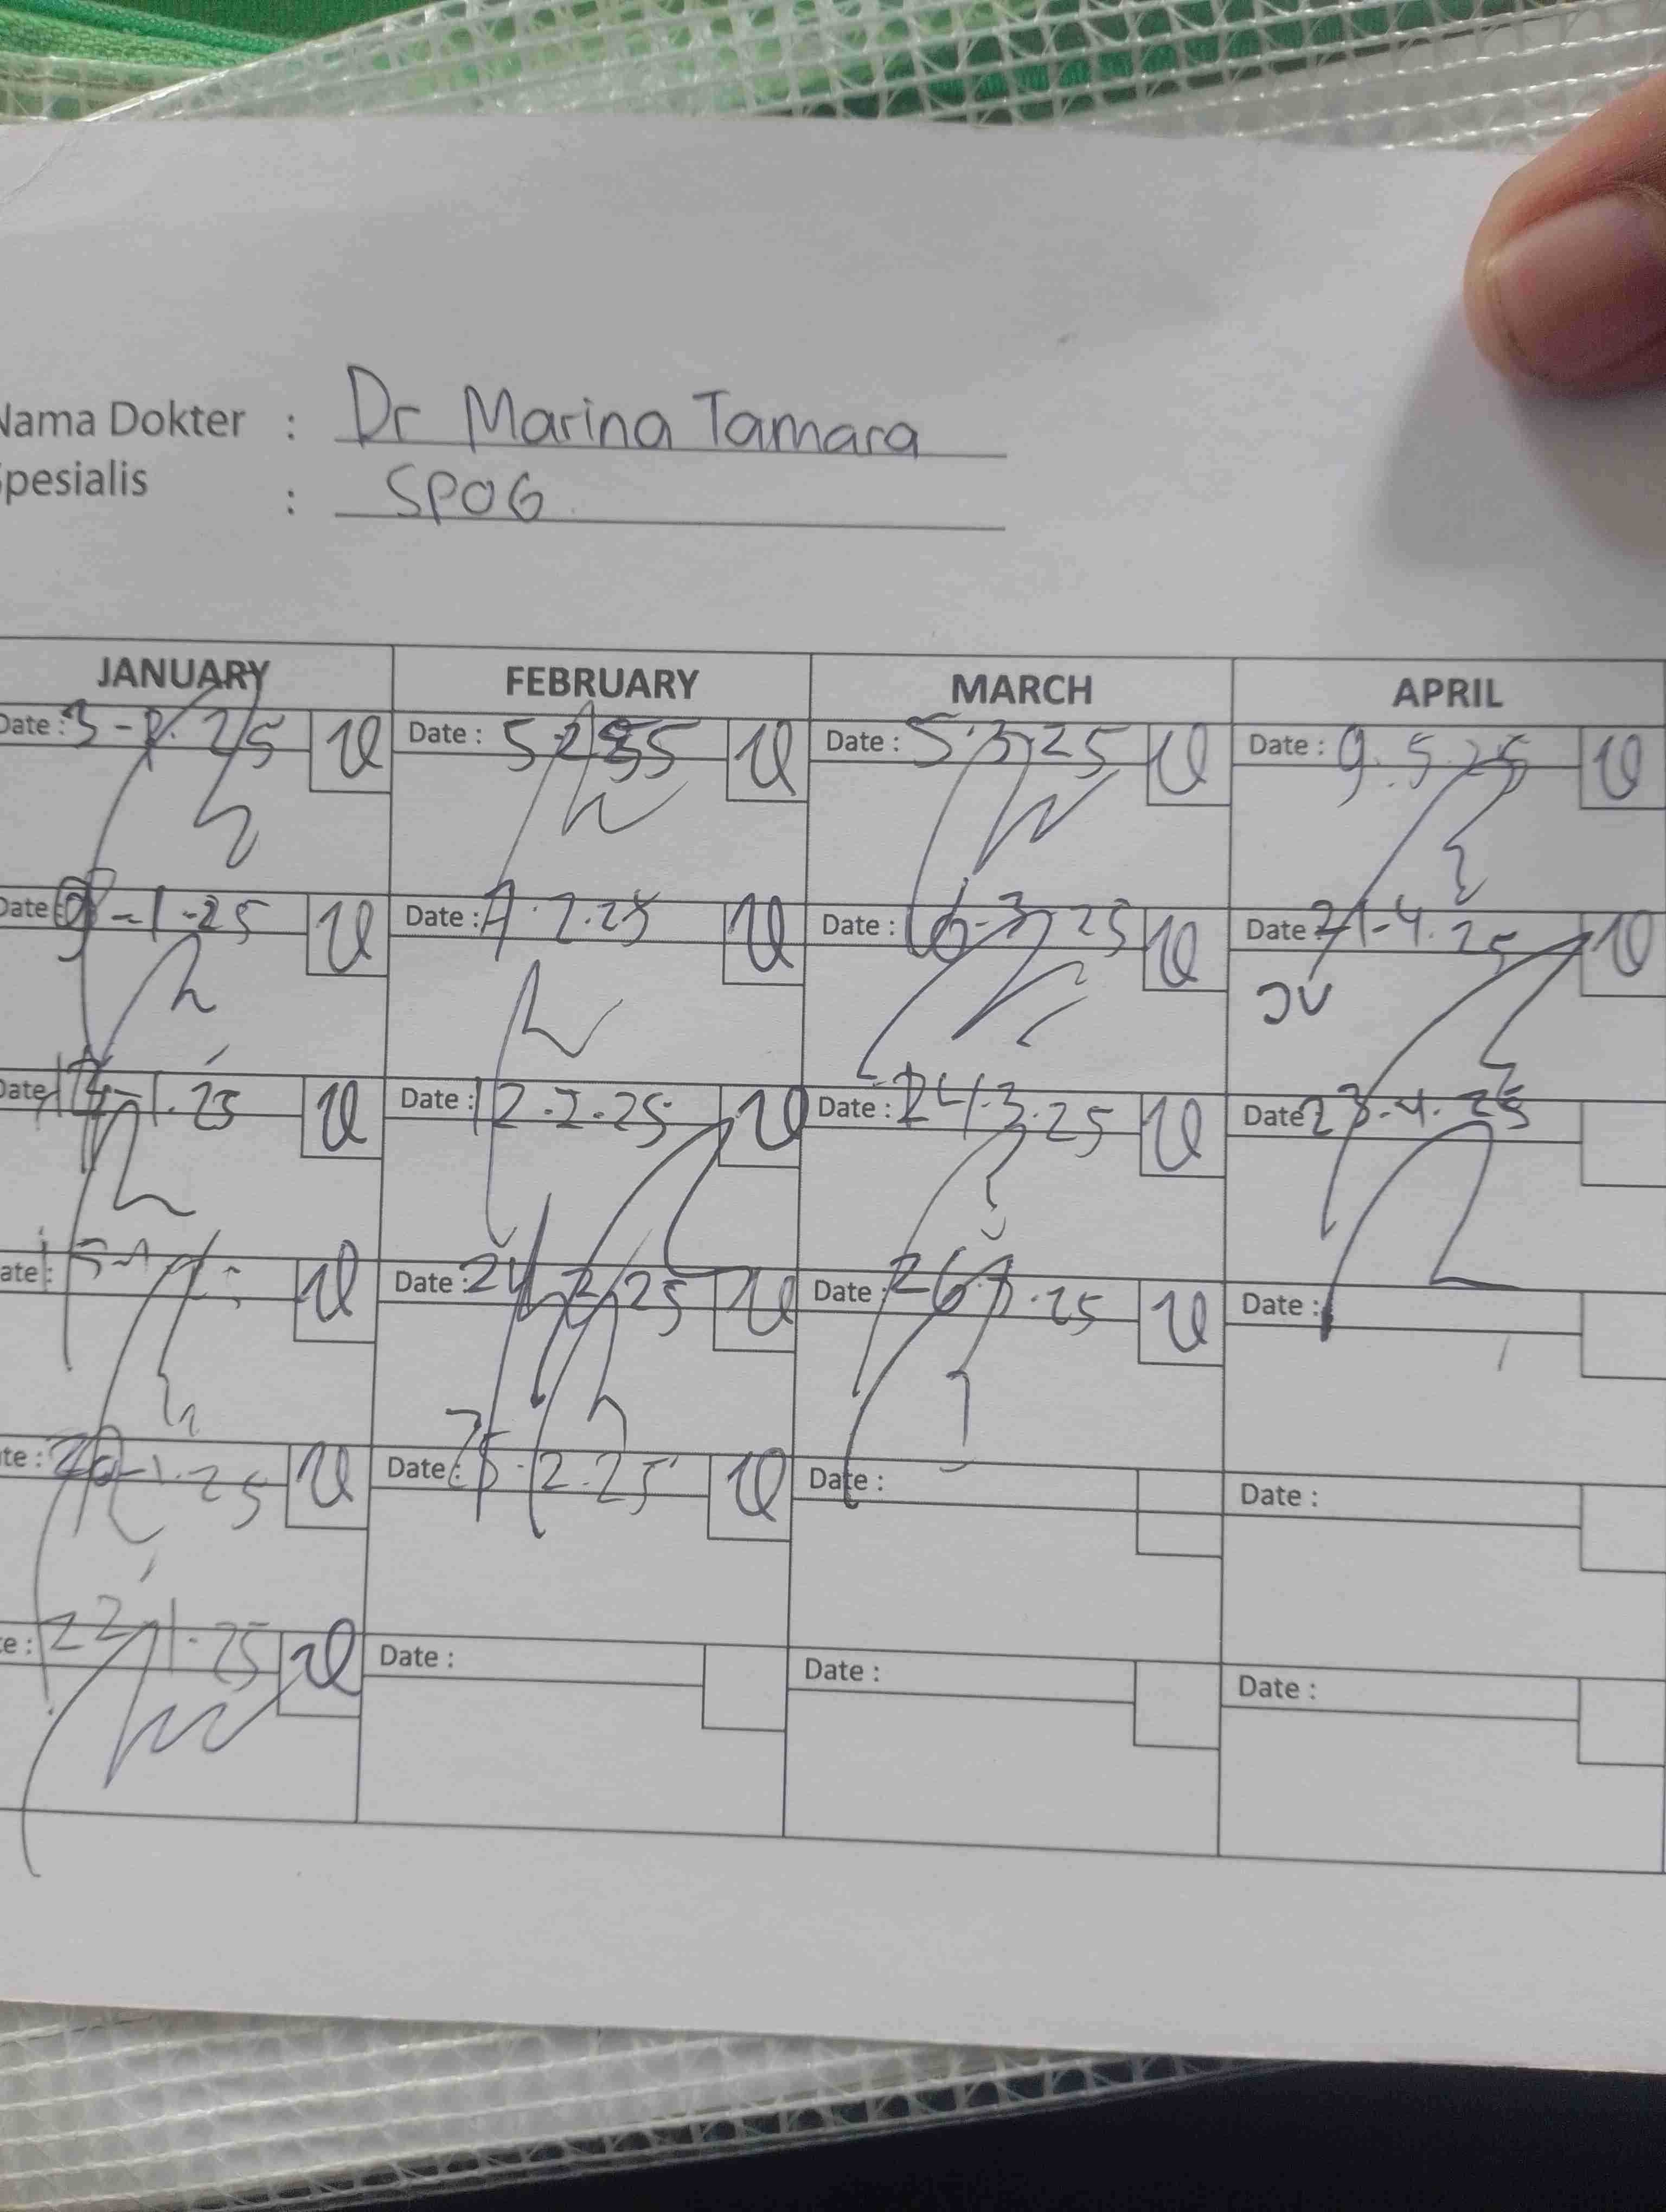 Nama Dokter : Dr Marina Tamara
Spesialis : SPOG
JANUARY FEBRUARY MARCH APRIL
Date : 3-1-25 Date : 5 Date : 5.3.25 Date : 9.5.25
Date -1-25 Date : 7.2.25 Date : 6-3-25 Date 21-4.25
Date -1.25 Date : 12.2.25 Date : 24.3.25 Date 23.4.25
Date : Date : 24 2 25 Date : 26.3.25 Date :
Date : 20-1.25 Date : 25.2.25 Date : Date :
Date : 22 1.25 Date : Date : Date :